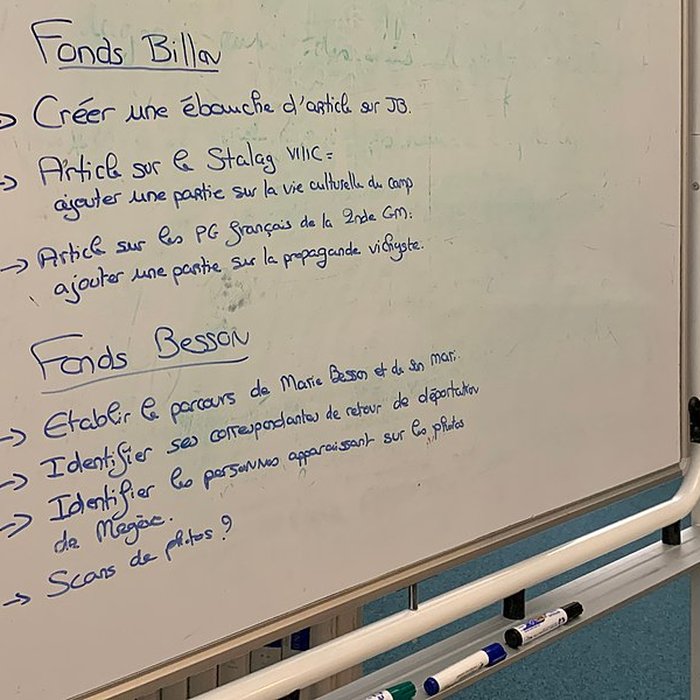 Fonds Billon
→ Créer une ébauche d'article sur JB.
→ Article sur le Stalag VIIIC :
ajouter une partie sur la vie culturelle du camp
→ Article sur les PG français de la 2nde GM :
ajouter une partie sur la propagande vichyste.
Fonds Besson
→ Etablir le parcours de Marie Besson et de son mari.
→ Identifier ses correspondantes de retour de déportation
→ Identifier les personnes apparaissant sur les photos
de Megève.
→ Scans de photos ?